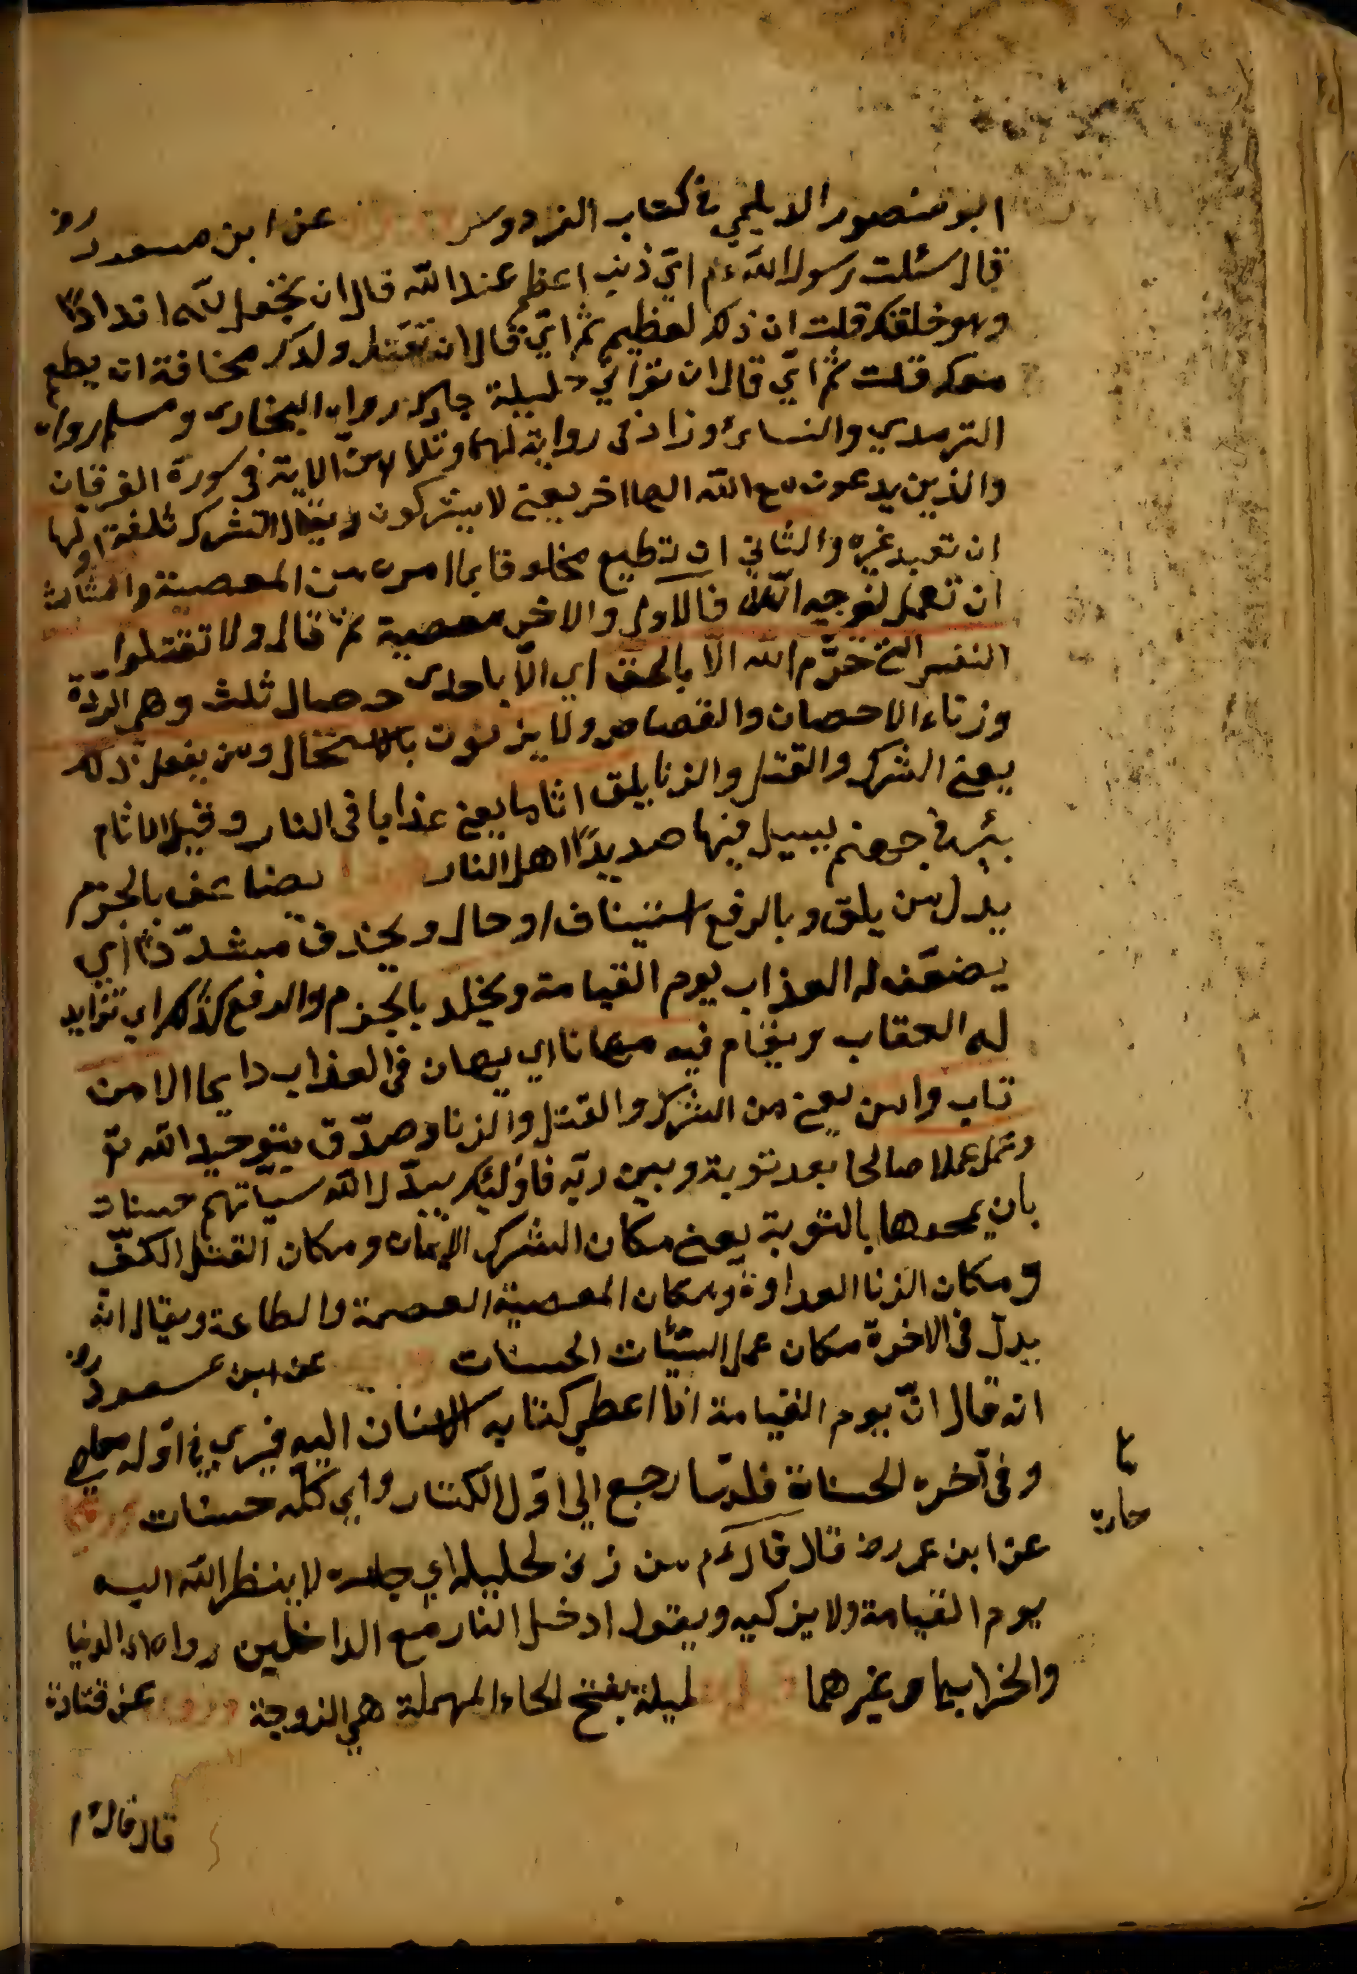 ابو منصور الديلمي في كتاب الفردوس عن ابن مسعود رض
قال سئلت رسول الله عم اي ذنب اعظم عند الله قال ان تجعل لله اندادا
وهو خلقك قلت ان ذلك لعظيم ثم اي قال ان تقتل ولدك مخافة ان يطعم
معك قلت ثم اي قال ان تزاني حليلة جارك رواه البخاري ومسلم رواه
الترمدي والنسائ وزاد في رواية لهما وتلا هذه الاية في سورة الفرقان
والذين يدعون مع الله الها اخر يعني لا يشركون ويقال الشرك ثلثة اولها
ان تعبد غيره والثاني ان تطيع مخلوقا بما امره من المعصية والثالث
ان تعمل لغير وجه الله فالاول والاخر معصية ثم قال ولا تقتلوا
النفس التي حرّم الله الّا بالحق اي الّا باحدى خصال ثلث وهي الردّة
وزناء الاحصان والقصاص ولا يزنون بالاستحلال ومن يفعل ذلك
يعني الشرك والقتل والزنا يلق اثاما يعني عذابا في النار وقيل الاثام
بئر في جهنم يسيل فيها صديد اهل النار يضاعف بالجزم
بدل من يلق وبالرفع استيناف او حال ويحذف مشدّدا اي
يضعّف له العذاب يوم القيامة ويخلد بالجزم والرفع كذلك اي تزايد
له العقاب ويقام فيه مهانا اي يهان في العذاب دايما الا من
تاب وامن يعني من الشرك والقتل والزنا وصدّق بتوحيد الله تع
وعمل عملا صالحا بعد توبة وبين ربه فاولئك يبدّل الله سياتهم حسنات
بان يمحدها بالتوبة يعني مكان الشرك الايمان ومكان القتل الكفّ
ومكان الزنا العداوة ومكان المعصية العصمة والطاعة ويقال انه
يبدل في الاخرة مكان عمل السيّئات الحسنات عن ابن مسعود رض
انه قال انّ يوم القيامة اذا اعطي كتابه الانسان اليه فيري في اوله معاصي
وفي آخره الحسناة فلمّا رجع الي اوّل الكتاب راي كلّه حسنات
عن ابن عمر رض قال قال عم من زنى لحليلة اي جاره لا ينظر الله اليه
يوم القيامة ولا يزكيه ويقول ادخل النار مع الداخلين رواه الدنيا
والخرايما وغيرهما لحيلة بفتح الحاء المهملة هي الزوجة عن قتادة
قال قال عم